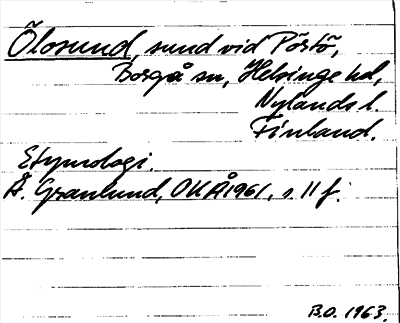 Ölosund, sund vid Pörtö,
Borgå sn, Helsinge hd,
Nylands l.
Finland.
Etymologi.
Å. Granlund, OKÅ 1961, s. 11 f.
B.O. 1963.